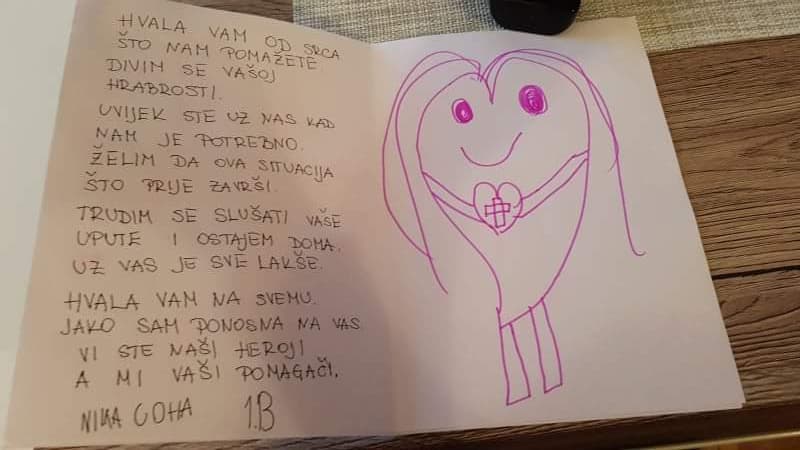 HVALA VAM OD SRCA
ŠTO NAM POMAŽETE
DIVIM SE VAŠOJ
HRABROSTI.
UVIJEK STE UZ NAS KAD
NAM JE POTREBNO.
ŽELIM DA OVA SITUACIJA
ŠTO PRIJE ZAVRŠI.
TRUDIM SE SLUŠATI VAŠE
UPUTE I OSTAJEM DOMA.
UZ VAS JE SVE LAKŠE.
HVALA VAM NA SVEMU.
JAKO SAM PONOSNA NA VAS
VI STE NAŠI HEROJI
A MI VAŠI POMAGAČI.
NIKA COHA 1.B